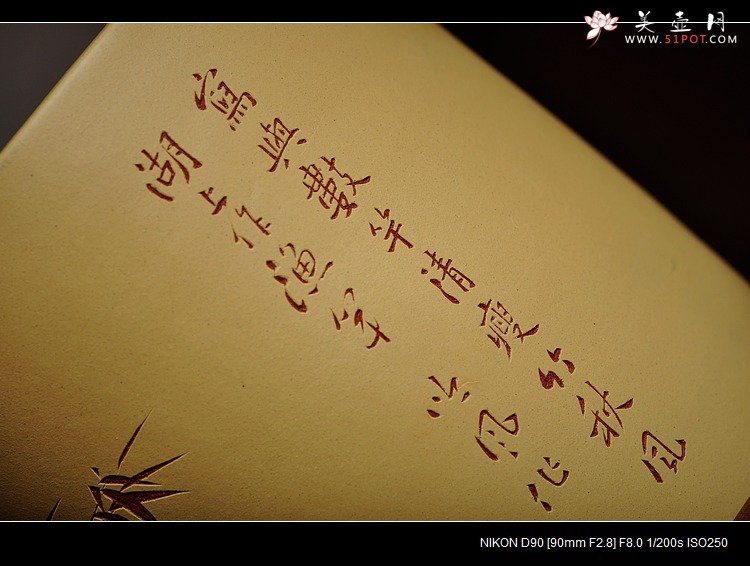 美壶网
WWW.51POT.COM
寫與數竿清瘦竹秋風
湖上作漁竿
NIKON D90 [90mm F2.8] F8.0 1/200s ISO250